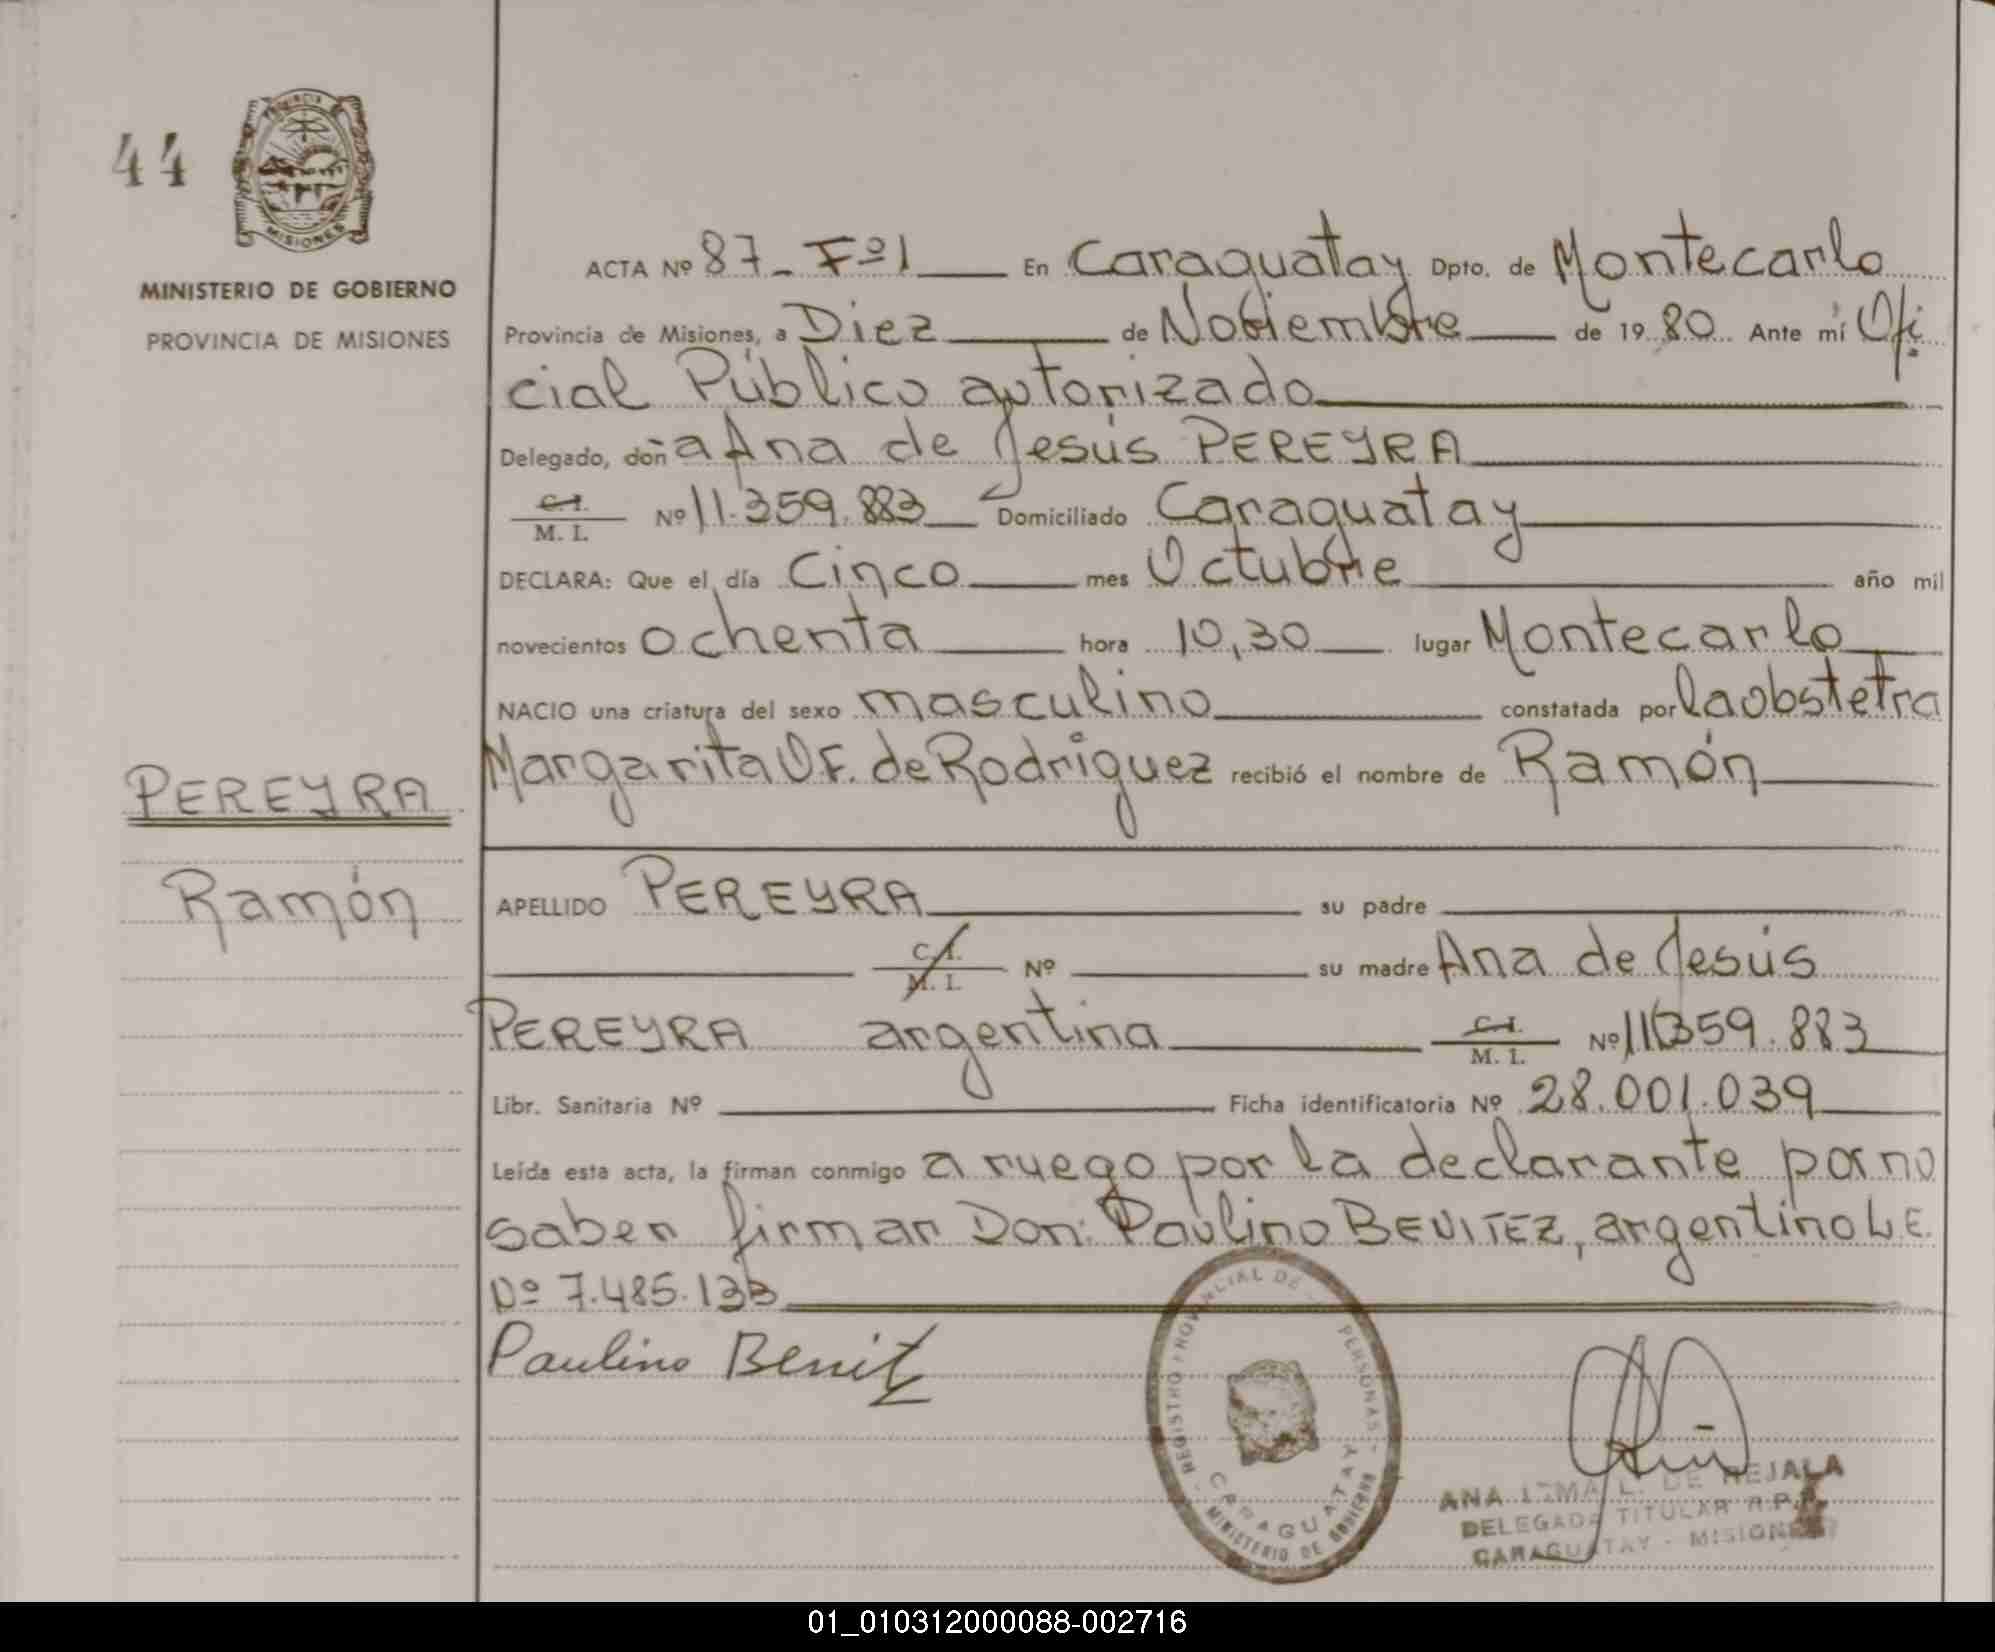 44
PROVINCIA DE
MISIONES
MINISTERIO DE GOBIERNO
PROVINCIA DE MISIONES
ACTA Nº 87 - Fº1 En Caraguatay Dpto. de Montecarlo
Provincia de Misiones, a Diez de Nobiembre de 1980 Ante mí Ofi
cial Público autorizado
Delegado, doña Ana de Jesús PEREYRA
C.I.
M. I. Nº 11.359.883 Domiciliado Caraguatay
DECLARA: Que el día Cinco mes Octubre año mil
novecientos ochenta hora 10,30 lugar Montecarlo
NACIO una criatura del sexo masculino constatada por la obstetra
Margarita O.F. de Rodriguez recibió el nombre de Ramón
PEREYRA
Ramón
APELLIDO PEREYRA su padre
C. I.
M. I. Nº su madre Ana de Jesús
PEREYRA argentina C.I.
M. I. Nº 11359.883
Libr. Sanitaria Nº Ficha identificatoria Nº 28.001.039
Leída esta acta, la firman conmigo a ruego por la declarante por no
saber firmar Don: Paulino BENITEZ, argentino L.E.
Nº 7.485.133
Paulino Benitz
REGISTRO PROVINCIAL DE PERSONAS
CARAGUATAY
MINISTERIO DE GOBIERNO
ANA L. DE REJALA
DELEGADA TITULAR R.P.
CARAGUATAY - MISIONES
01_010312000088-002716